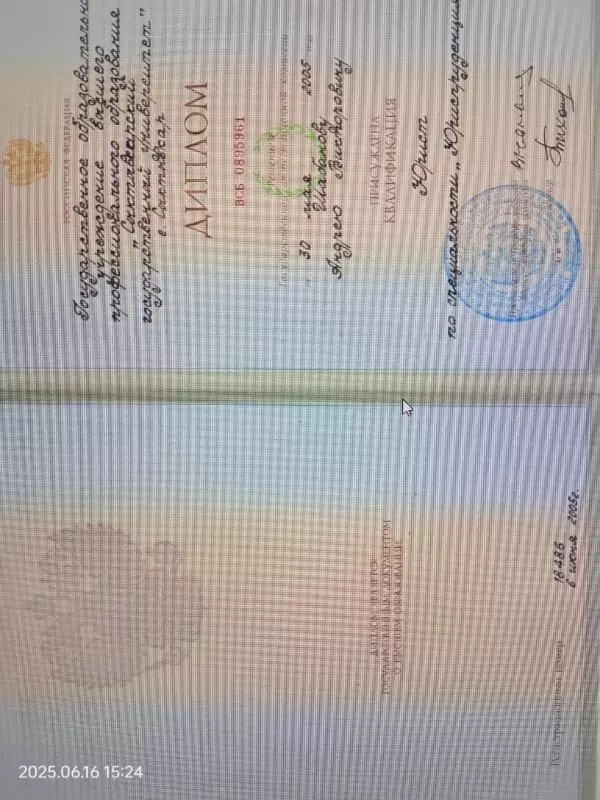 РОССИЙСКАЯ ФЕДЕРАЦИЯ
Государственное образовательное
учреждение высшего
профессионального образования
"Сыктывкарский
государственный университет"
г. Сыктывкар
ДИПЛОМ
ВСБ 0895961
Решением
Государственной аттестационной комиссии
от 30 мая 2005 года
Шабанову
Андрею Викторовичу
ПРИСУЖДЕНА
КВАЛИФИКАЦИЯ
Юрист
по специальности „Юриспруденция
ДИПЛОМ ЯВЛЯЕТСЯ
ГОСУДАРСТВЕННЫМ ДОКУМЕНТОМ
О ВЫСШЕМ ОБРАЗОВАНИИ
Регистрационный номер 18486
6 июня 2005г.
2025.06.16 15:24